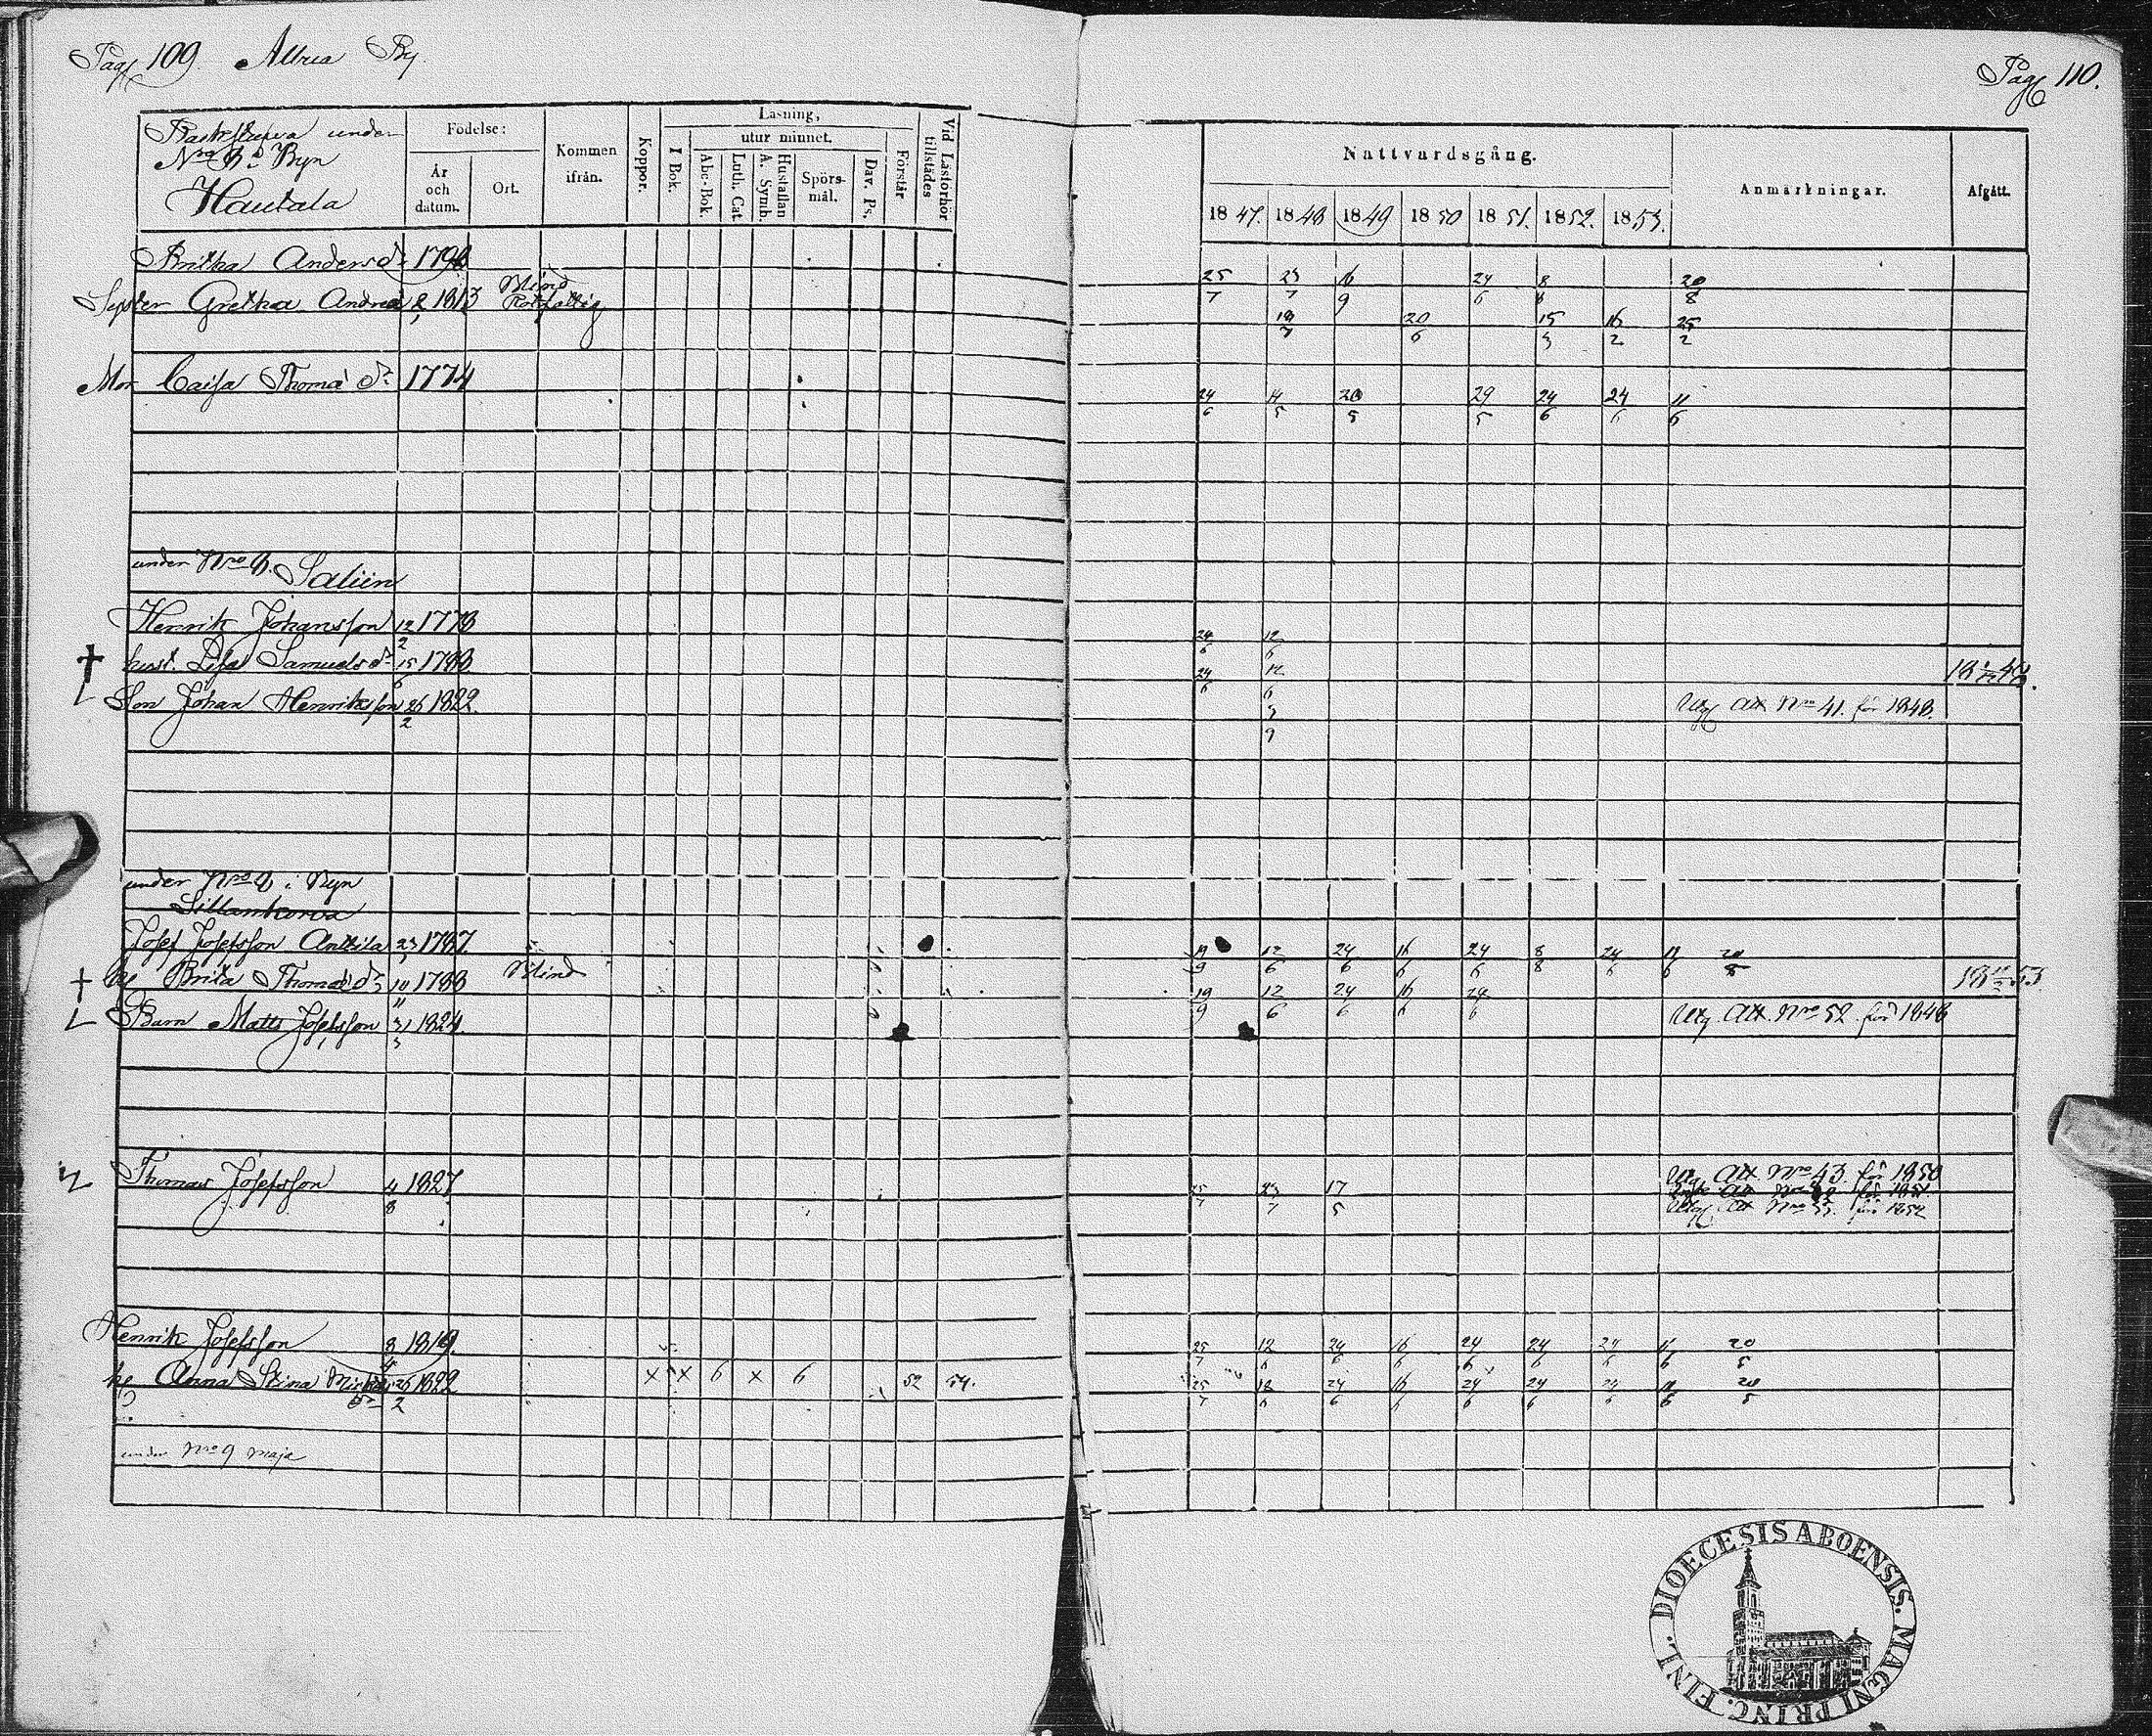 Pag 109. Altria By.
Pag 110.
Backstuga under
Nro 8 i Byn
Hautala
Födelse:
År och datum.
Ort.
Kommen ifrån.
Koppor.
Läsning,
I Bok.
utur minnet.
Abc-Bok.
Luth. Cat.
A. Symb.
Hustaflan
Spörs-mål.
Dav. Ps.
Förstår
Vid Läsförhör tillstädes
Nattvardsgång.
Anmärkningar.
Afgått.
1847. 1848 1849 1850 1851. 1852. 1853.
Britha Andersdr 1798
25/7 23/7 16/9 24/6 8/8 20/8
Syster Gretha Andersd 1813 Blind Rotfattig
19/7 20/6 15/3 16/2 25/2
Mor Caisa Thomædr 1774
24/6 14/5 20/5 29/5 24/6 24/6 11/6
under Nro 8. Saliin
Henrik Johansson 12/2 1778
24/6 12/6
† hust. Lisa Samuelsdr 15/6 1788
24/6 12/6
Son Johan Henriksson 26/2 1822.
3/9 Utg Att. Nro 41. för 1848.
under Nro 8 i Byn
Sillankorva
Josef Josefsson Anttila 23 1787.
19/9 12/6 24/6 16/6 24/6 8/8 24/6 11/6 20/8
† hu Brita Thomædr 10/11 1788 Blind
19/9 12/6 24/6 16/6 24/6
Barn Matts Josefsson 31/3 1824.
Utg. Att. Nro 52. för 1848
Thomas Josefsson 4/8 1827
25/7 23/7 17/5 Utg Att Nro 43. för 1850
för 1851.
Utg Att Nro 33. för 1852
Henrik Josefsson 8/4 1819.
25/7 12/6 24/6 16/6 24/6 24/6 24/6 11/6 20/8
hu Anna Stina 26/2 1822 x x 6 x 6 52 54.
25/7 12/6 24/6 16/6 24/6 24/6 24/6 11/6 20/8
under Nro 9 Maja
DIOECESIS ABOENSIS. MAGNI PRINC. FINL.